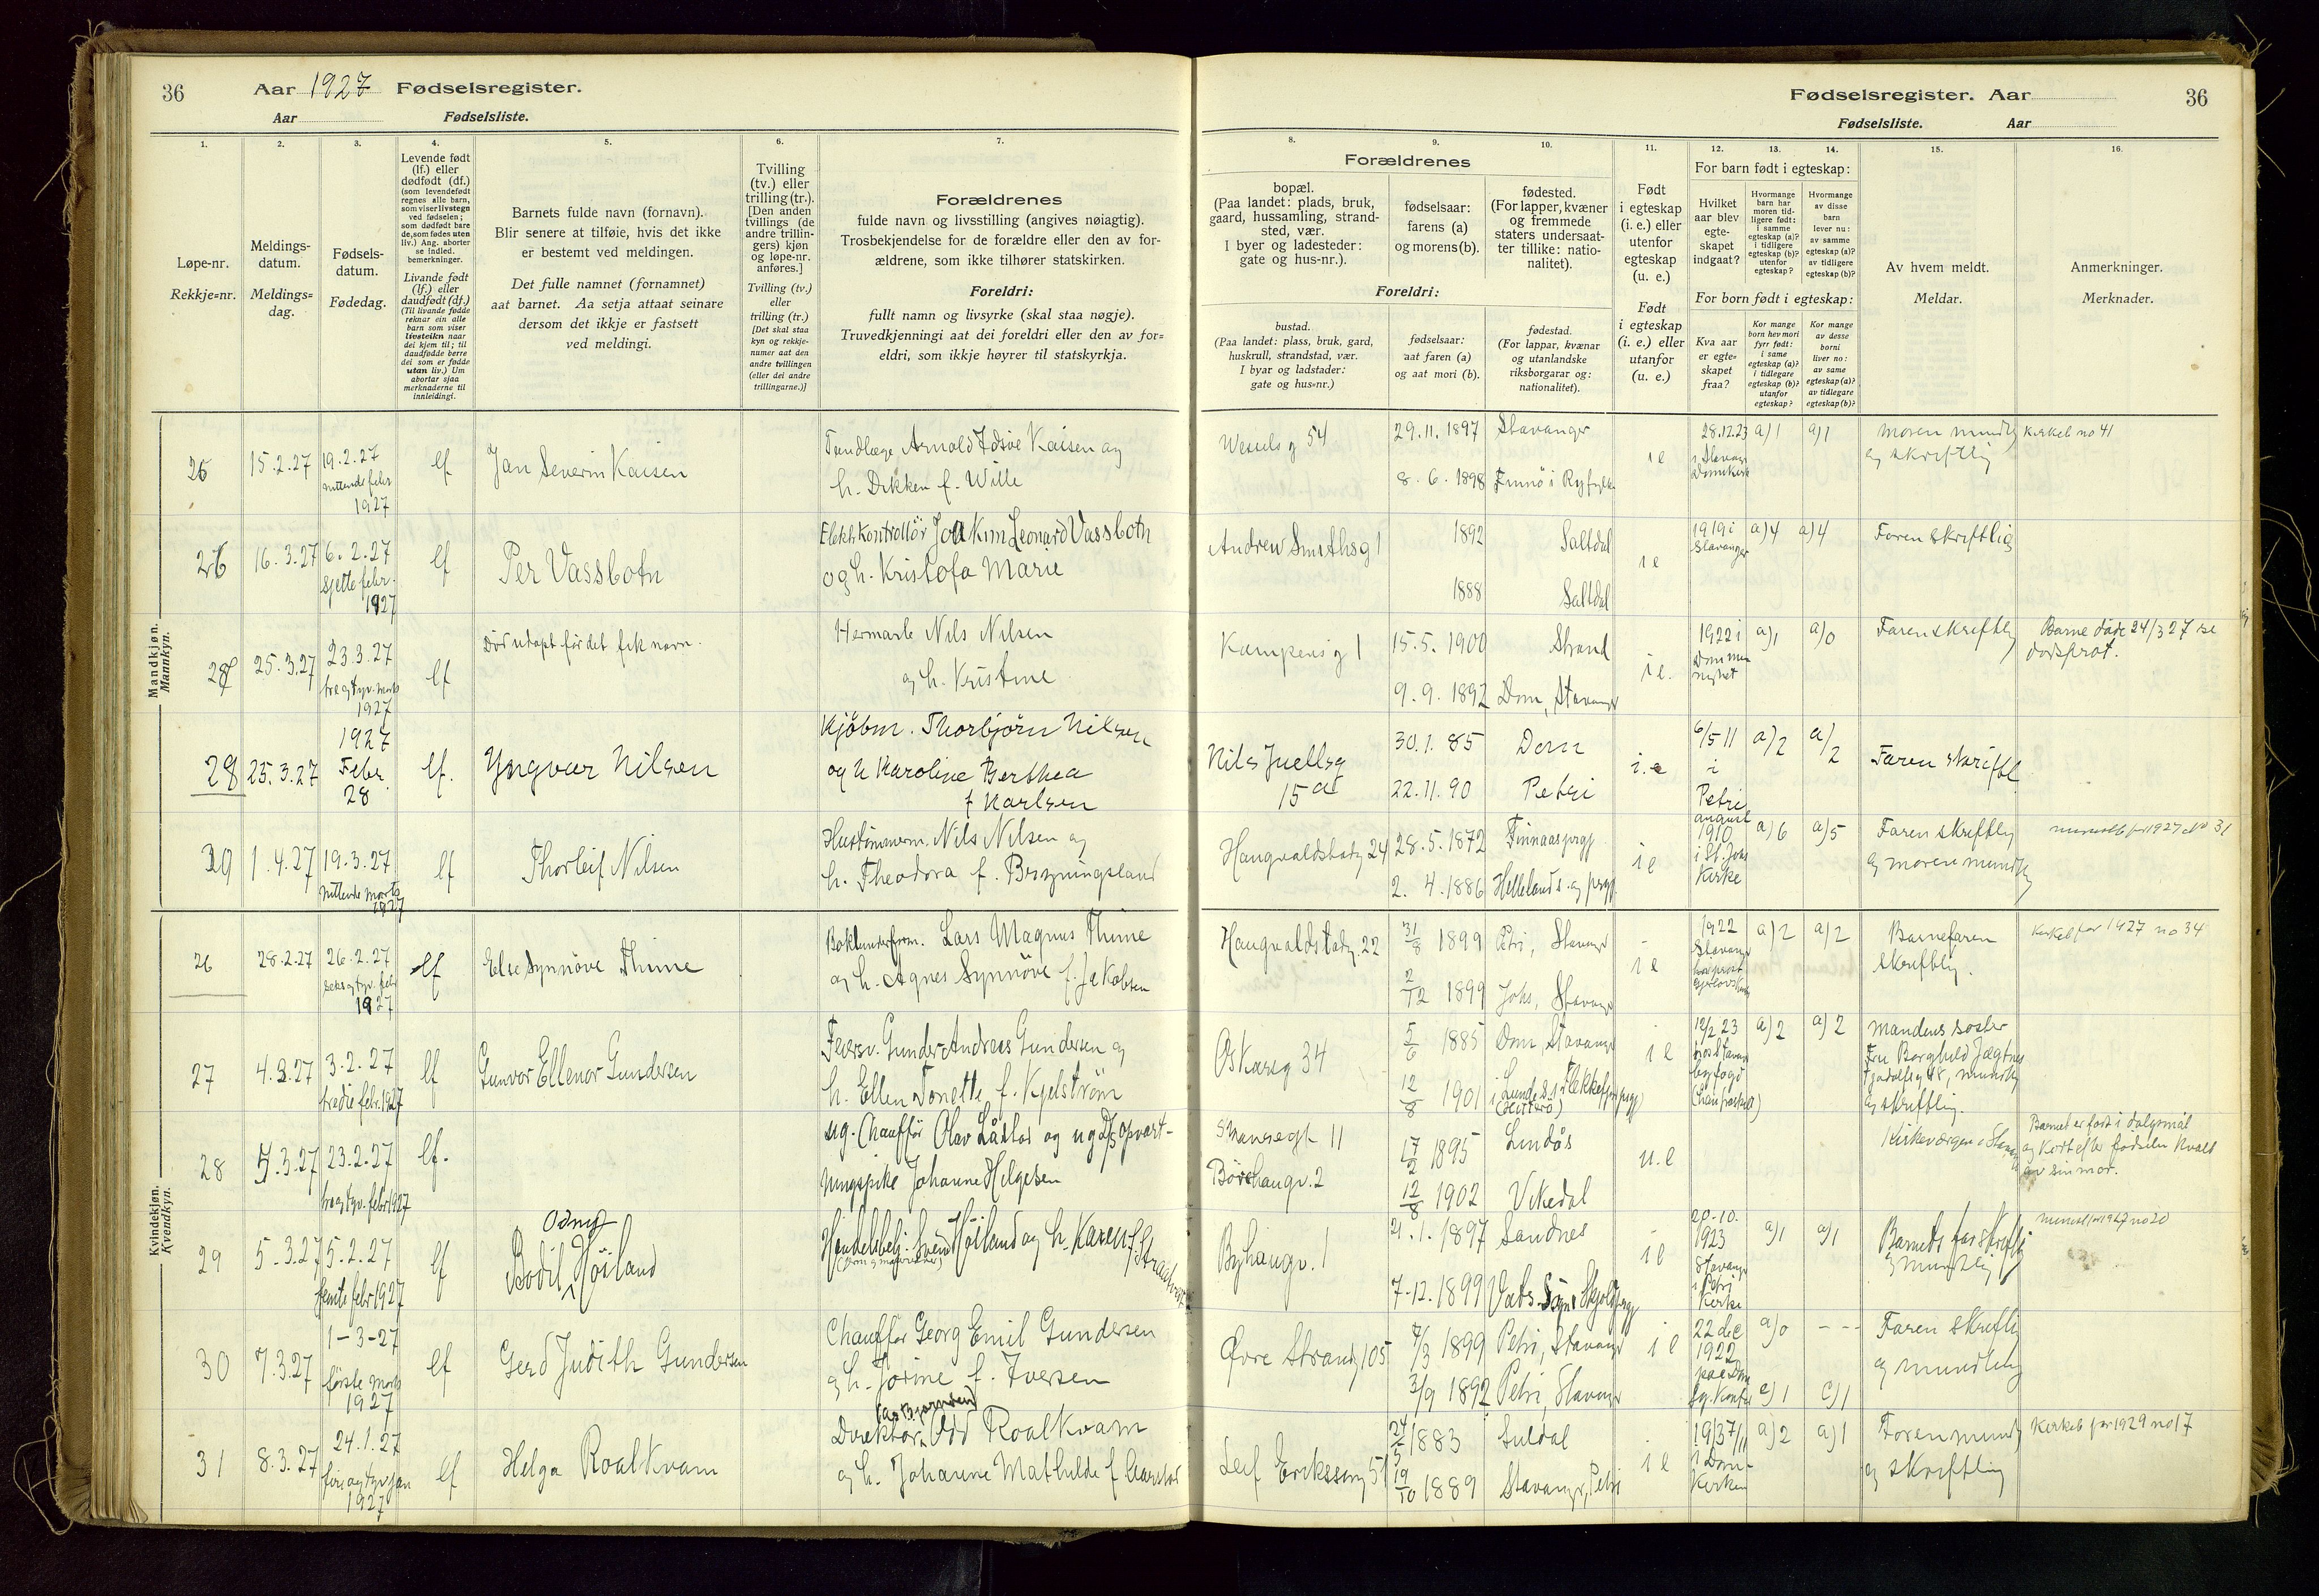 36
Aar 1927 Fødselsregister.
Aar Fødselsliste.
Fødselsregister. Aar
36
Fødselsliste. Aar
1.
Løpe-nr.
Rekkje-nr.
2.
Meldings-
datum.
Meldings-
dag.
3.
Fødsels-
datum.
Fødedag.
4.
Levende født
(lf.) eller
dødfødt (df.)
(som levendefødt
regnes alle barn,
som viser livstegn
ved fødselen;
som dødfødt bare
de, som fødes uten
liv.) Ang. aborter
se indled.
bemerkninger.
Livande født
(lf.) eller
daudfødt (df.)
(Til livande fødde
reknar ein alle
barn som viser
livsteikn naar
dei kjem til; til
daudfødde berre
dei som er fødde
utan liv.) Um
abortar sjaa
merknaderne til
innleidingi.
5.
Barnets fulde navn (fornavn).
Blir senere at tilføie, hvis det ikke
er bestemt ved meldingen.
Det fulle namnet (fornamnet)
aat barnet. Aa setja attaat seinare
dersom det ikkje er fastsett
ved meldingi.
6.
Tvilling
(tv.) eller
trilling (tr.).
[Den anden
tvillings (de
andre trillin-
gers) kjøn
og løpe-nr.
anføres.]
Tvilling (tv.)
eller
trilling (tr.)
[Det skal staa
kyn og rekkje-
numer aat den
andre tvillingen
(eller dei andre
trillingarne.)]
7.
Forældrenes
fulde navn og livsstilling (angives nøiagtig).
Trosbekjendelse for de forældre eller den av for-
ældrene, som ikke tilhører statskirken.
Foreldri:
fullt namn og livsyrke (skal staa nøgje).
Truvedkjenningi aat dei foreldri eller den av for-
eldri, som ikkje høyrer til statskyrkja.
8.
Forældrenes
bopæl.
(Paa landet: plads, bruk,
gaard, hussamling, strand-
sted, vær.
I byer og ladesteder:
gate og hus-nr.).
Foreldri:
bustad.
(Paa landet: plass, bruk, gard,
huskrull, strandstad, vær.
I byar og ladstader:
gate og hus-nr.)
9.
fødselsaar:
farens (a)
og morens (b).
fødselsaar:
aat faren (a)
og aat mori (b).
10.
fødested.
(For lapper, kvæner
og fremmede
staters undersaat-
ter tillike: natio-
nalitet).
fødestad.
(For lappar, kvænar
og utanlandske
riksborgarar og:
nationalitet).
11.
Født
i egteskap
(i. e.) eller
utenfor
egteskap
(u. e.)
Født
i egteskap
(i. e.) eller
utanfor
(u. e.)
12. 13. 14.
For barn født i egteskap:
Hvilket
aar blev
egte-
skapet
indgaat?
Hvormange
barn har
moren tid-
ligere født:
i samme
egteskap (a)?
i tidligere
egteskap (b)?
utenfor
egteskap?
Hvormange
av disse
barn
lever nu:
av samme
egteskap (a)?
av tidligere
egteskap (b)?
For born født i egteskap:
Kva aar
er egte-
skapet
fraa?
Kor mange
born hev mori
fyrr født:
i same
egteskap (a)?
i tidlegare
egteskap (b)?
utanfor
egteskap?
Kor mange
av desse
borni
liver no:
av same
egteskap (a)?
av tidlegare
egteskap (b)?
15.
Av hvem meldt.
Meldar.
16.
Anmerkninger.
Merknader.
Mandkjøn.
Mannkyn.
25 15.2.27 19.2.27 lf Jan Severin Kaisen
nittende febr
1927
Tandlæge Arnold Kaisen og
h. Dikken f. Wille
Wessels g 54 29.11.1897 Stavanger
8.6.1898 Finnö i Ryfylke
i e 28.12.23 a)1 a)1
i Stavanger
Domkirke
Moren mundtlig
og skriftlig
Kirkeb no 41
26 16.3.27 6.2.27 lf Per Vassbotn
sjette febr.
1927
Elektr. Kontrollör Joakim Leonard Vassbotn
og h. Kristofa Marie
Andrew Smithsg 1 1892 Saltdal
1888 Saltdal
i e 1919 i a)4 a)4
Stavanger
Faren skriftlig
27 25.3.27 23.3.27 lf Död udöpt för det fik navn.
tre og tyv. marts
1927
Hermatr. Nils Nilsen
og h. Kristine
Kampensg 1 15.5.1900 Strand
9.9.1892 Dom, Stavanger
i e. 1922 i a)1 a)0
Dom me
nighet
Faren skriftlig
Barne döde 24/3 27 se
dödsprot.
28 25.3.27 1927
Febr.
28
lf. Yngvar Nilsen
Kjöbm. Thorbjörn Nilsen
og h Karoline Berthea
f Karlsen
Nils Juellsg
15 a
30.1.85 Dom
22.11.90 Petri
i.e 6/5 11 a)2 a)2
i
Petri
Faren skriftl
29 1.4.27 19.3.27 lf Thorleif Nilsen
nittende marts
1927
Hustömmerm. Nils Nilsen og
h. Theodora f. Bryningsland
Haugvaldstadg 24 28.5.1872 Finnaas prgj
2.4.1886 Hellelands. og prgj
i e august
1910 a)6 a)5
i St. Johs
Kirke
Faren skriftlig
og moren mundtlig
1927 no 31
Kvindekjøn.
Kvendkyn.
26 28.2.27 26.2.27 lf Else Synnöve Thime
seks og tyv. febr
1927
Lars Magnus Thime
og h. Agnes Synnöve f. Jakobsen
Haugvaldstadg. 22 31/8 1899 Petri, Stavanger
2/12 1899 Johs, Stavanger
i e 1922 a)2 a)2
Stavanger
Barnefaren
skriftlig.
Kirkeb for 1927 no 34
27 4.3.27 3.2.27 lf Gunvor Ellenor Gundersen
tredie febr. 1927
Feiersv. Gunder Andreas Gundersen og
h. Ellen Tonette f. Kjelström
Oskarsg 34 5/6 1885 Dom, Stavanger
12/8 1901 i Lunde s. i Flekkefj prgj
(Hitterö)
i e 12/2 23 a)2 a)2
hos Stavanger
byfogd
Mandens söster
Fru Borghild Jægtnes
48, mundtlig
og skriftlig.
28 5.3.27 23.2.27 lf.
tre og tyv. febr 1927
ug. Chaufför Olav og ug D/S opvart-
ningspike Johanne Helgesen
11
Börehaugv. 2
17/2 1895 Lindås
12/8 1902 Vikedal
u.e
Kirkeværgen i Stavanger
Barnet er fört i dölgsmål
og kort efter födselen kvalt
av sin mor.
29 5.3.27 5.2.27 lf Bodil Odny Höiland
femte febr 1927
Handelsbetj. Svend Höiland og h. Karen f. Straatveit
Byhaugv. 1 21.1.1897 Sandnes
7.12.1899 Vats Sogn i Skjold prgj
i e 20.10.
1923 a)1 a)1
Stavanger
i Petri
Kirke
Barnets far skriftlig
og mundtlig
1927 no 20
30 7.3.27 1-3-27 lf Gerd Judith Gundersen
förste marts
1927
Chaufför Georg Emil Gundersen
og h. Jorine f. Iversen
Övre Strandg 105 7/3 1899 Petri, Stavanger
3/9 1892 Petri, Stavanger
i e 22 dec a)0 - - -
1922
c)1 c)1
Faren skriftlig
og mundtlig
31 8.3.27 24.1.27 lf Helga Roalkvam
fire og tyv jan
1927
(Asbjörnsen)
Direktör Odd Roalkvam
og h. Johanne Mathilde f Aarstad
Leif Erikssøng 51 24/5 1883 Suldal
19/10 1889 Stavanger, Petri
i e a)2 a)1
i Dom-
Kirken
Faren mundtl
og skriftlig
Kirkeb for 1929 no 17